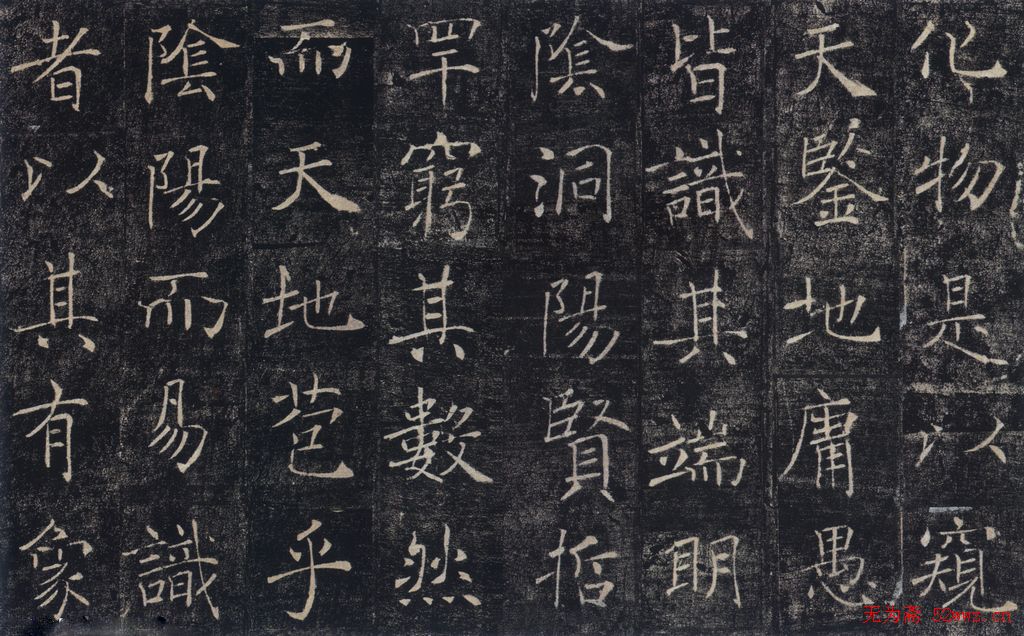 化物是以窺
天鑒地庸愚
皆識其端明
陰洞陽賢哲
罕窮其數然
而天地苞乎
陰陽而易識
者以其有象
无为斋 52wwz.cn